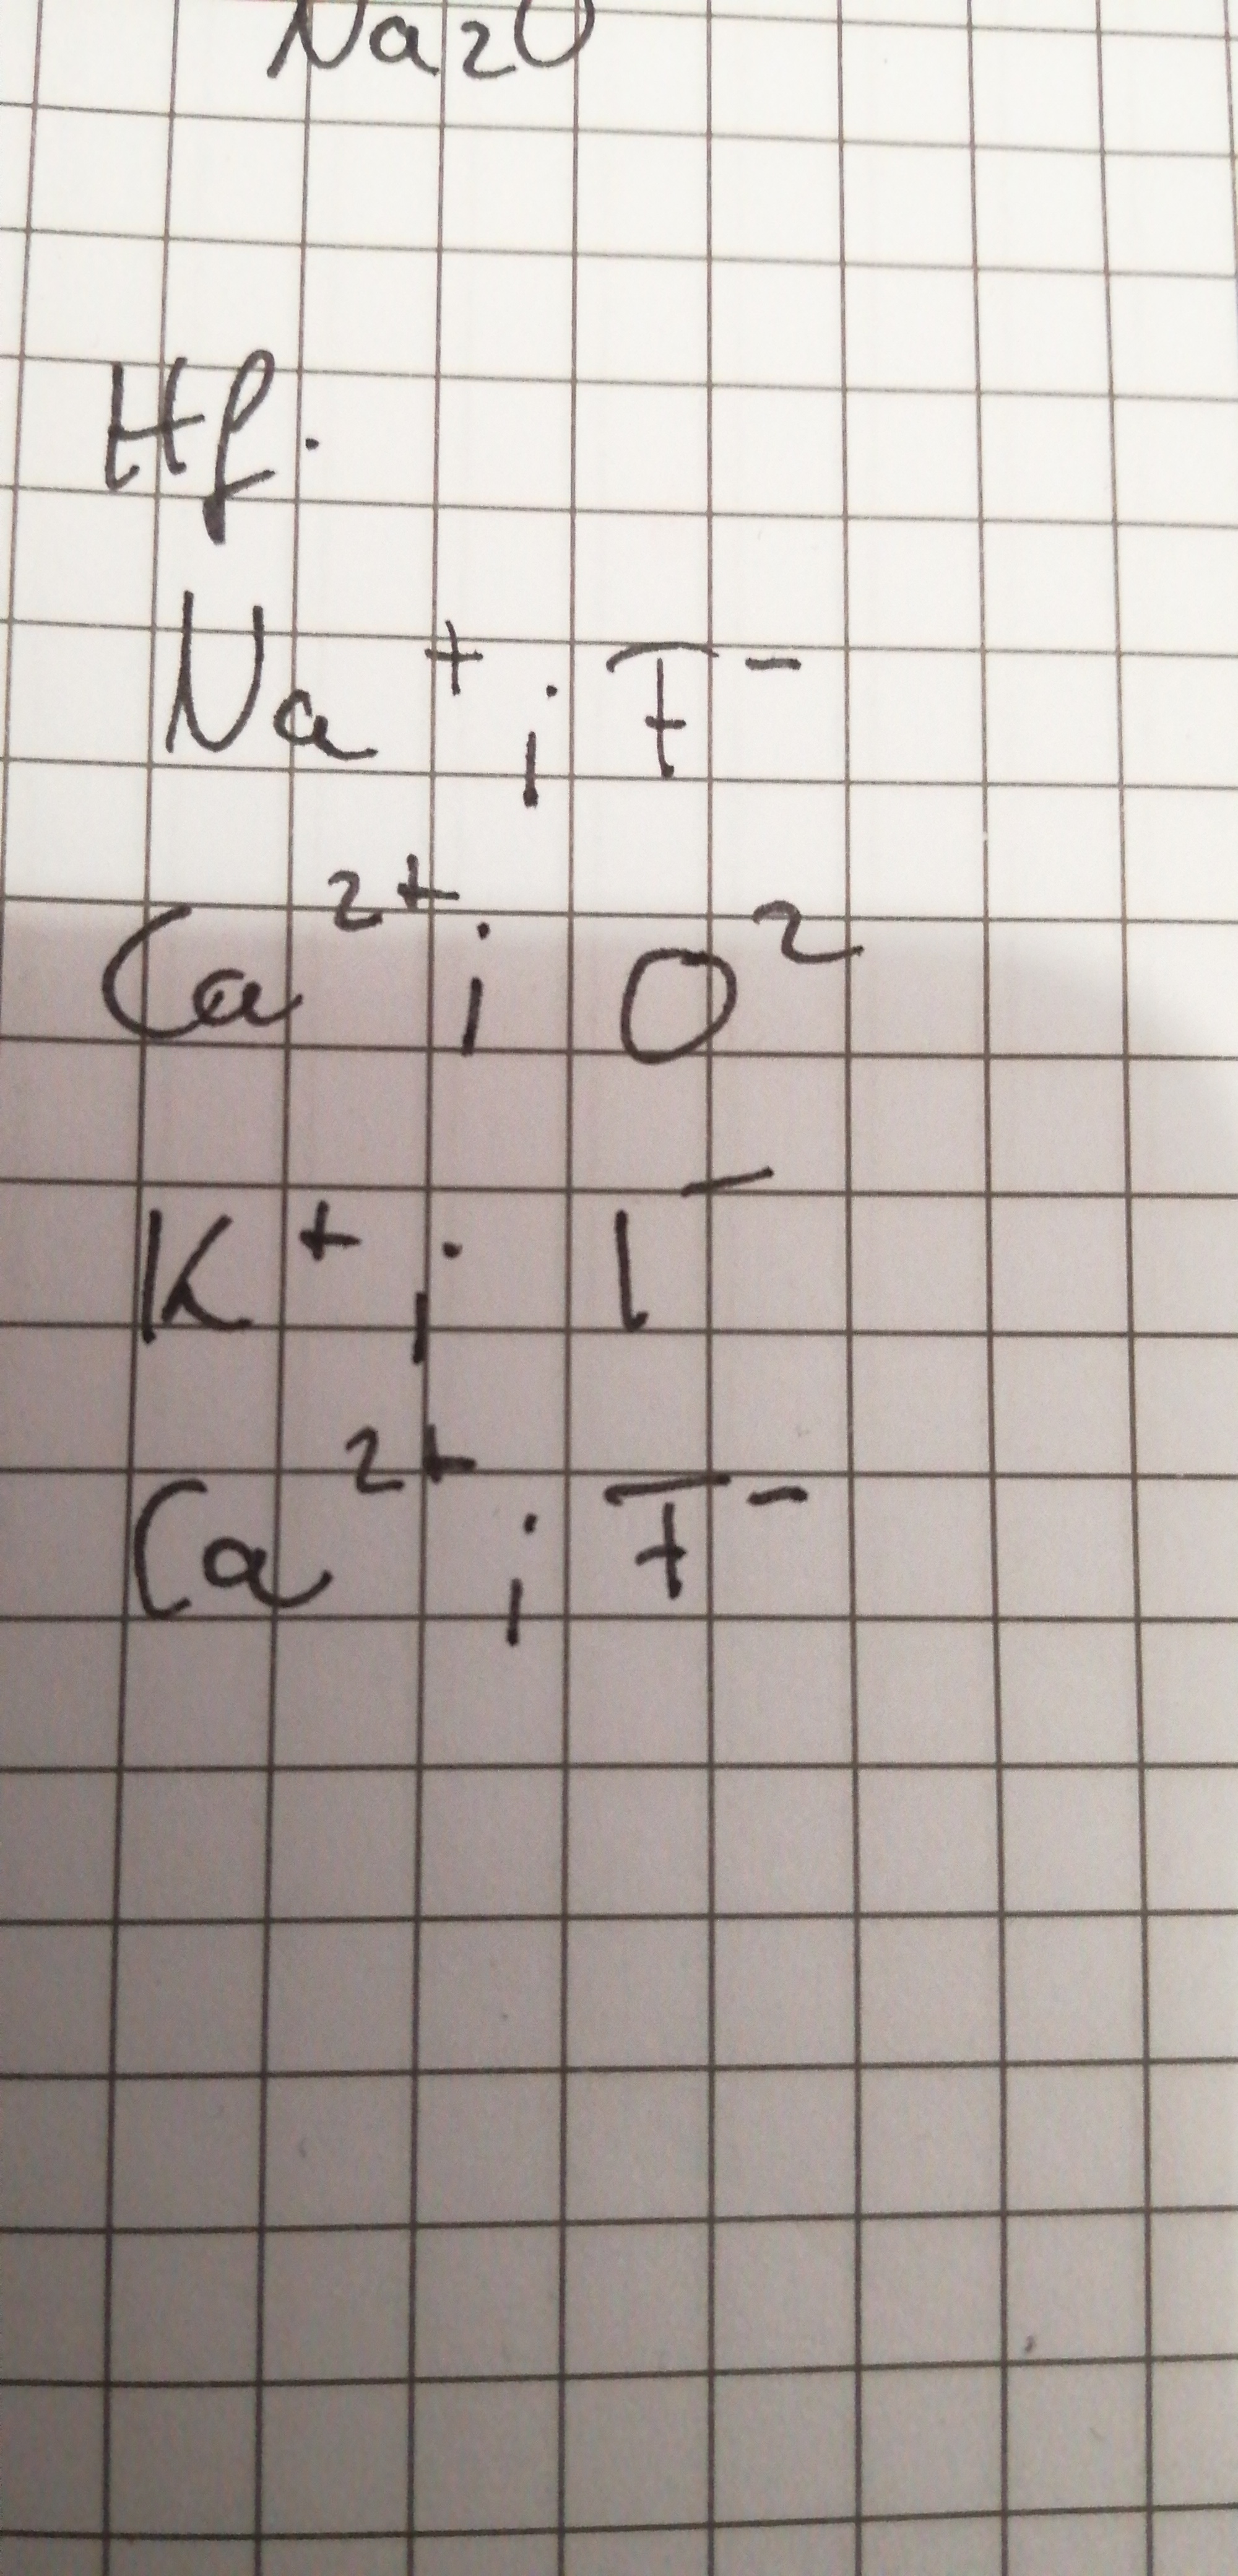 Na2O
Hf.
Na⁺; F⁻
Ca²⁺; O²
K⁺; I⁻
Ca²⁺; F⁻